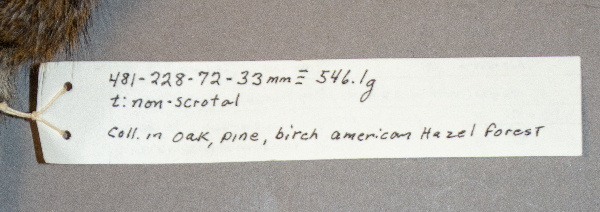 481-228-72-33mm ≡ 546.1g
t: non-scrotal
Coll. in oak, pine, birch american Hazel forest